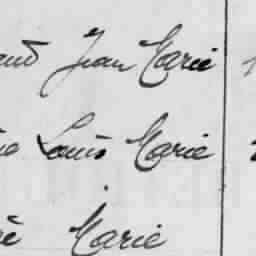 aud Jean Marie
Louis Marie
Marie